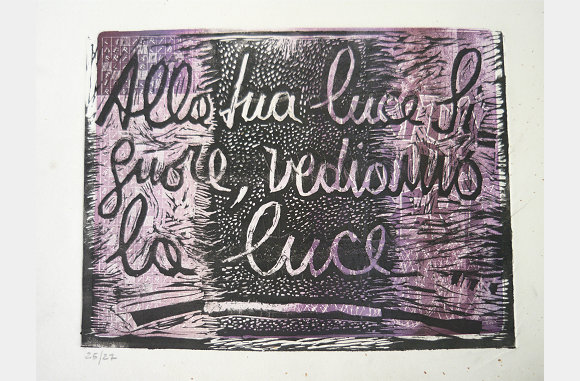 Alla tua luce Si
gnore, vediamo
la luce
26/27